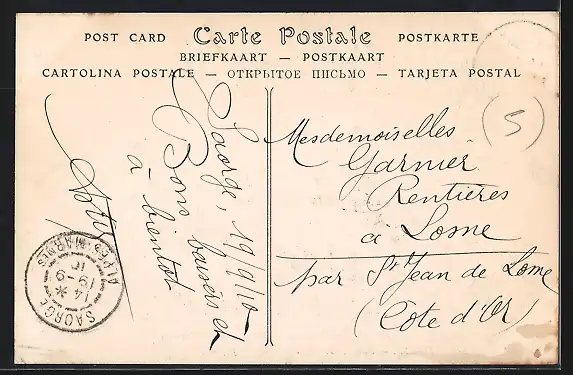 POST CARD Carte Postale POSTKARTE
BRIEFKAART — POSTKAART
CARTOLINA POSTALE — ОТКРЫТОЕ ПИСЬМО — TARJETA POSTAL
Saorge, 19/9/10
Bons baisers et
à bientôt
Mesdemoiselles
Garnier
Rentières
à Losne
par St Jean de Losne
(Côte d'Or)
5
SAORGE
14 *
19-9
10
ALPES-MARMES